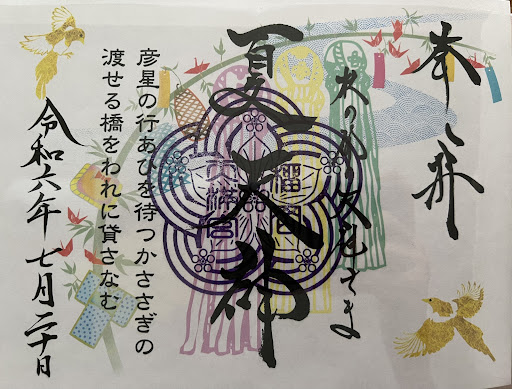 奉拝
夏天神
彦星の行あひを待つかささぎの
渡せる橋をわれに貸さなむ
令和六年七月二十日